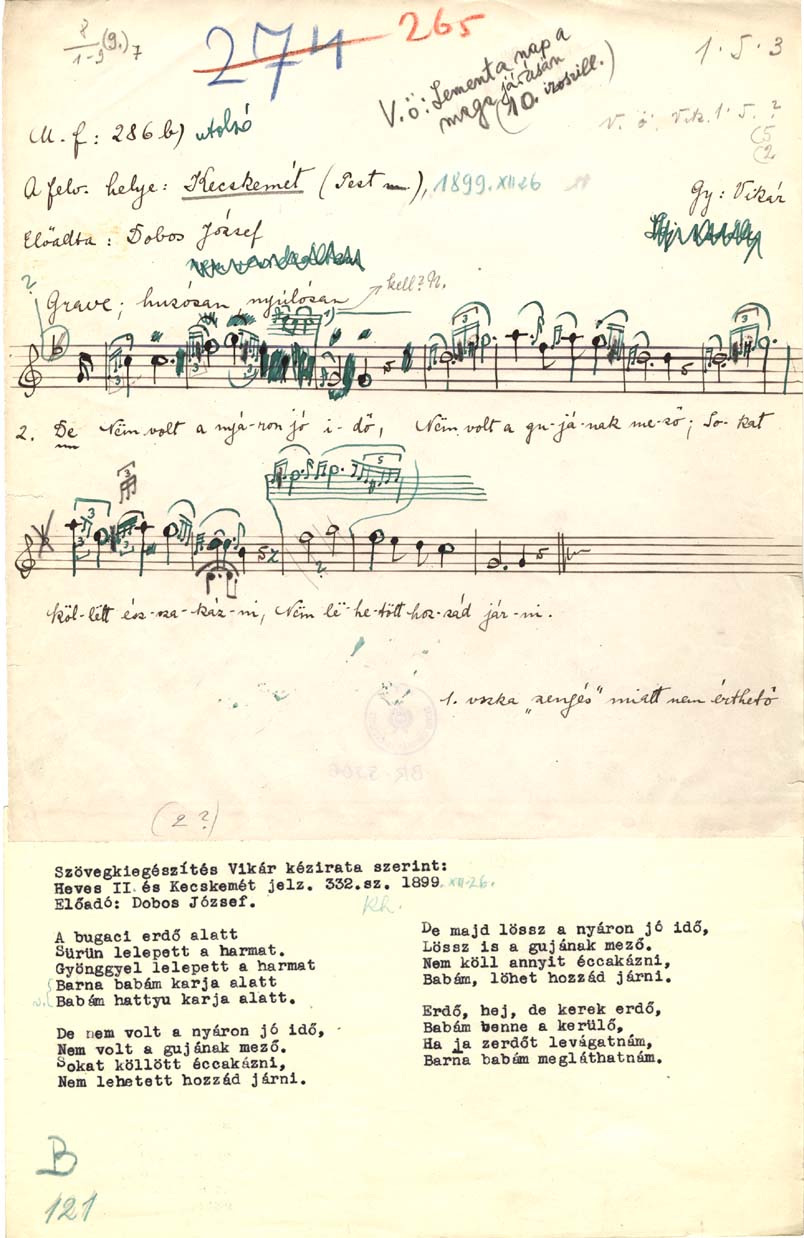 8
1-9 (9.) 7
274 265
1.5.3
V.ö: Lement a nap a
maga járásán
(10. izoszill.)
V. ö. Vik. 1. 5. ?
(5
(2
M. f: 286 b) utolsó
A felv. helye: Kecskemét (Pest m), 1899. XII 26
Gy: Vikár
Előadta: Dobos József
?
Grave; huzósan, nyúlósan
kell? N.
2. De Nëm volt a nyá-ron jó i-dő, Nëm volt a gu-já-nak me-ző; So-kat
köl-lëtt ész-sza-káz-ni, Nëm lë-he-tött hoz-zád jár-ni.
1. vszka „zengés" miatt nem érthető
(2?)
Szövegkiegészítés Vikár kézirata szerint:
Heves II. és Kecskemét jelz. 332.sz. 1899. XII-26.
Előadó: Dobos József.
Rh.
A bugaci erdő alatt
Sürün lelepett a harmat.
Gyönggyel lelepett a harmat
Barna babám karja alatt
v. Babám hattyu karja alatt.
De nem volt a nyáron jó idő,
Nem volt a gujának mező.
Sokat köllött éccakázni,
Nem lehetett hozzád járni.
De majd lössz a nyáron jó idő,
Lössz is a gujának mező.
Nem köll annyit éccakázni,
Babám, löhet hozzád járni.
Erdő, hej, de kerek erdő,
Babám benne a kerülő,
Ha ja zerdőt levágatnám,
Barna babám megláthatnám.
B
121